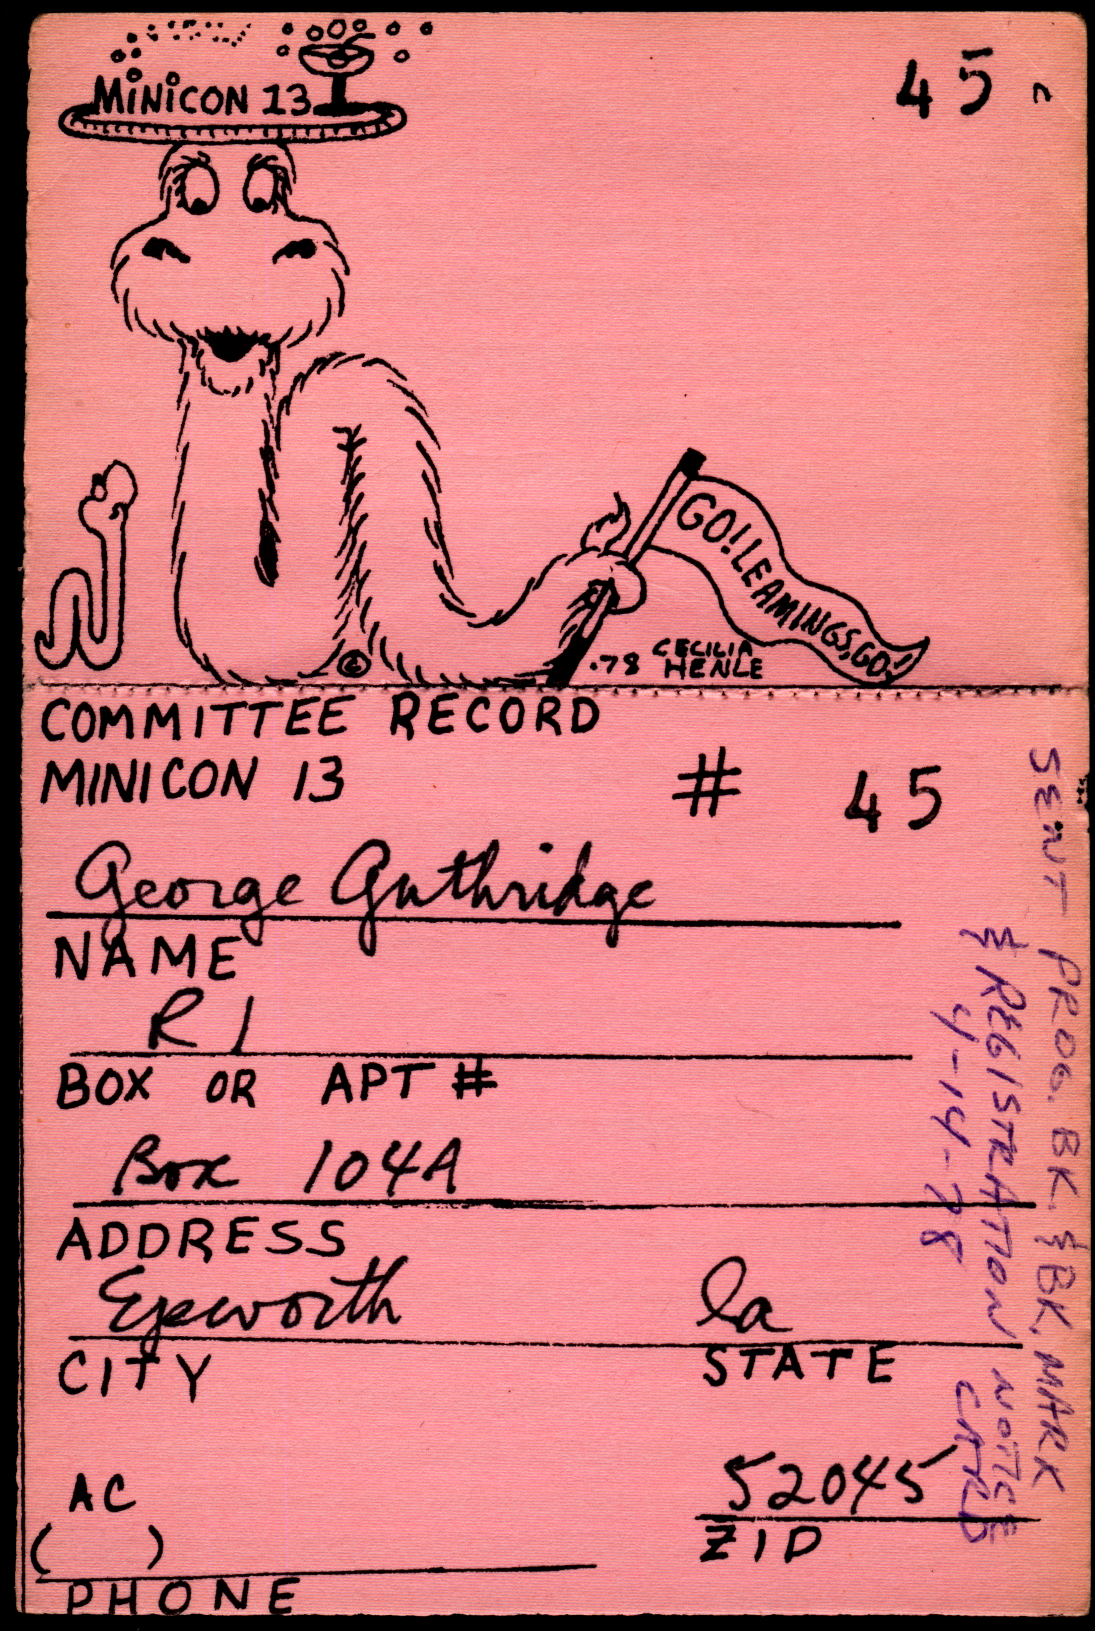 MINICON 13
45
GO! LEAMINGS, GO!
©
.78 CECILIA
HENLE
COMMITTEE RECORD
MINICON 13 # 45
George Guthridge
NAME
R 1
BOX OR APT #
Box 104A
ADDRESS
Epworth Ia
CITY STATE
52045
AC
( )
ZIP
PHONE
SENT PROG. BK. & BK. MARK
& REGISTRATION NOTICE
CARD
4-14-78